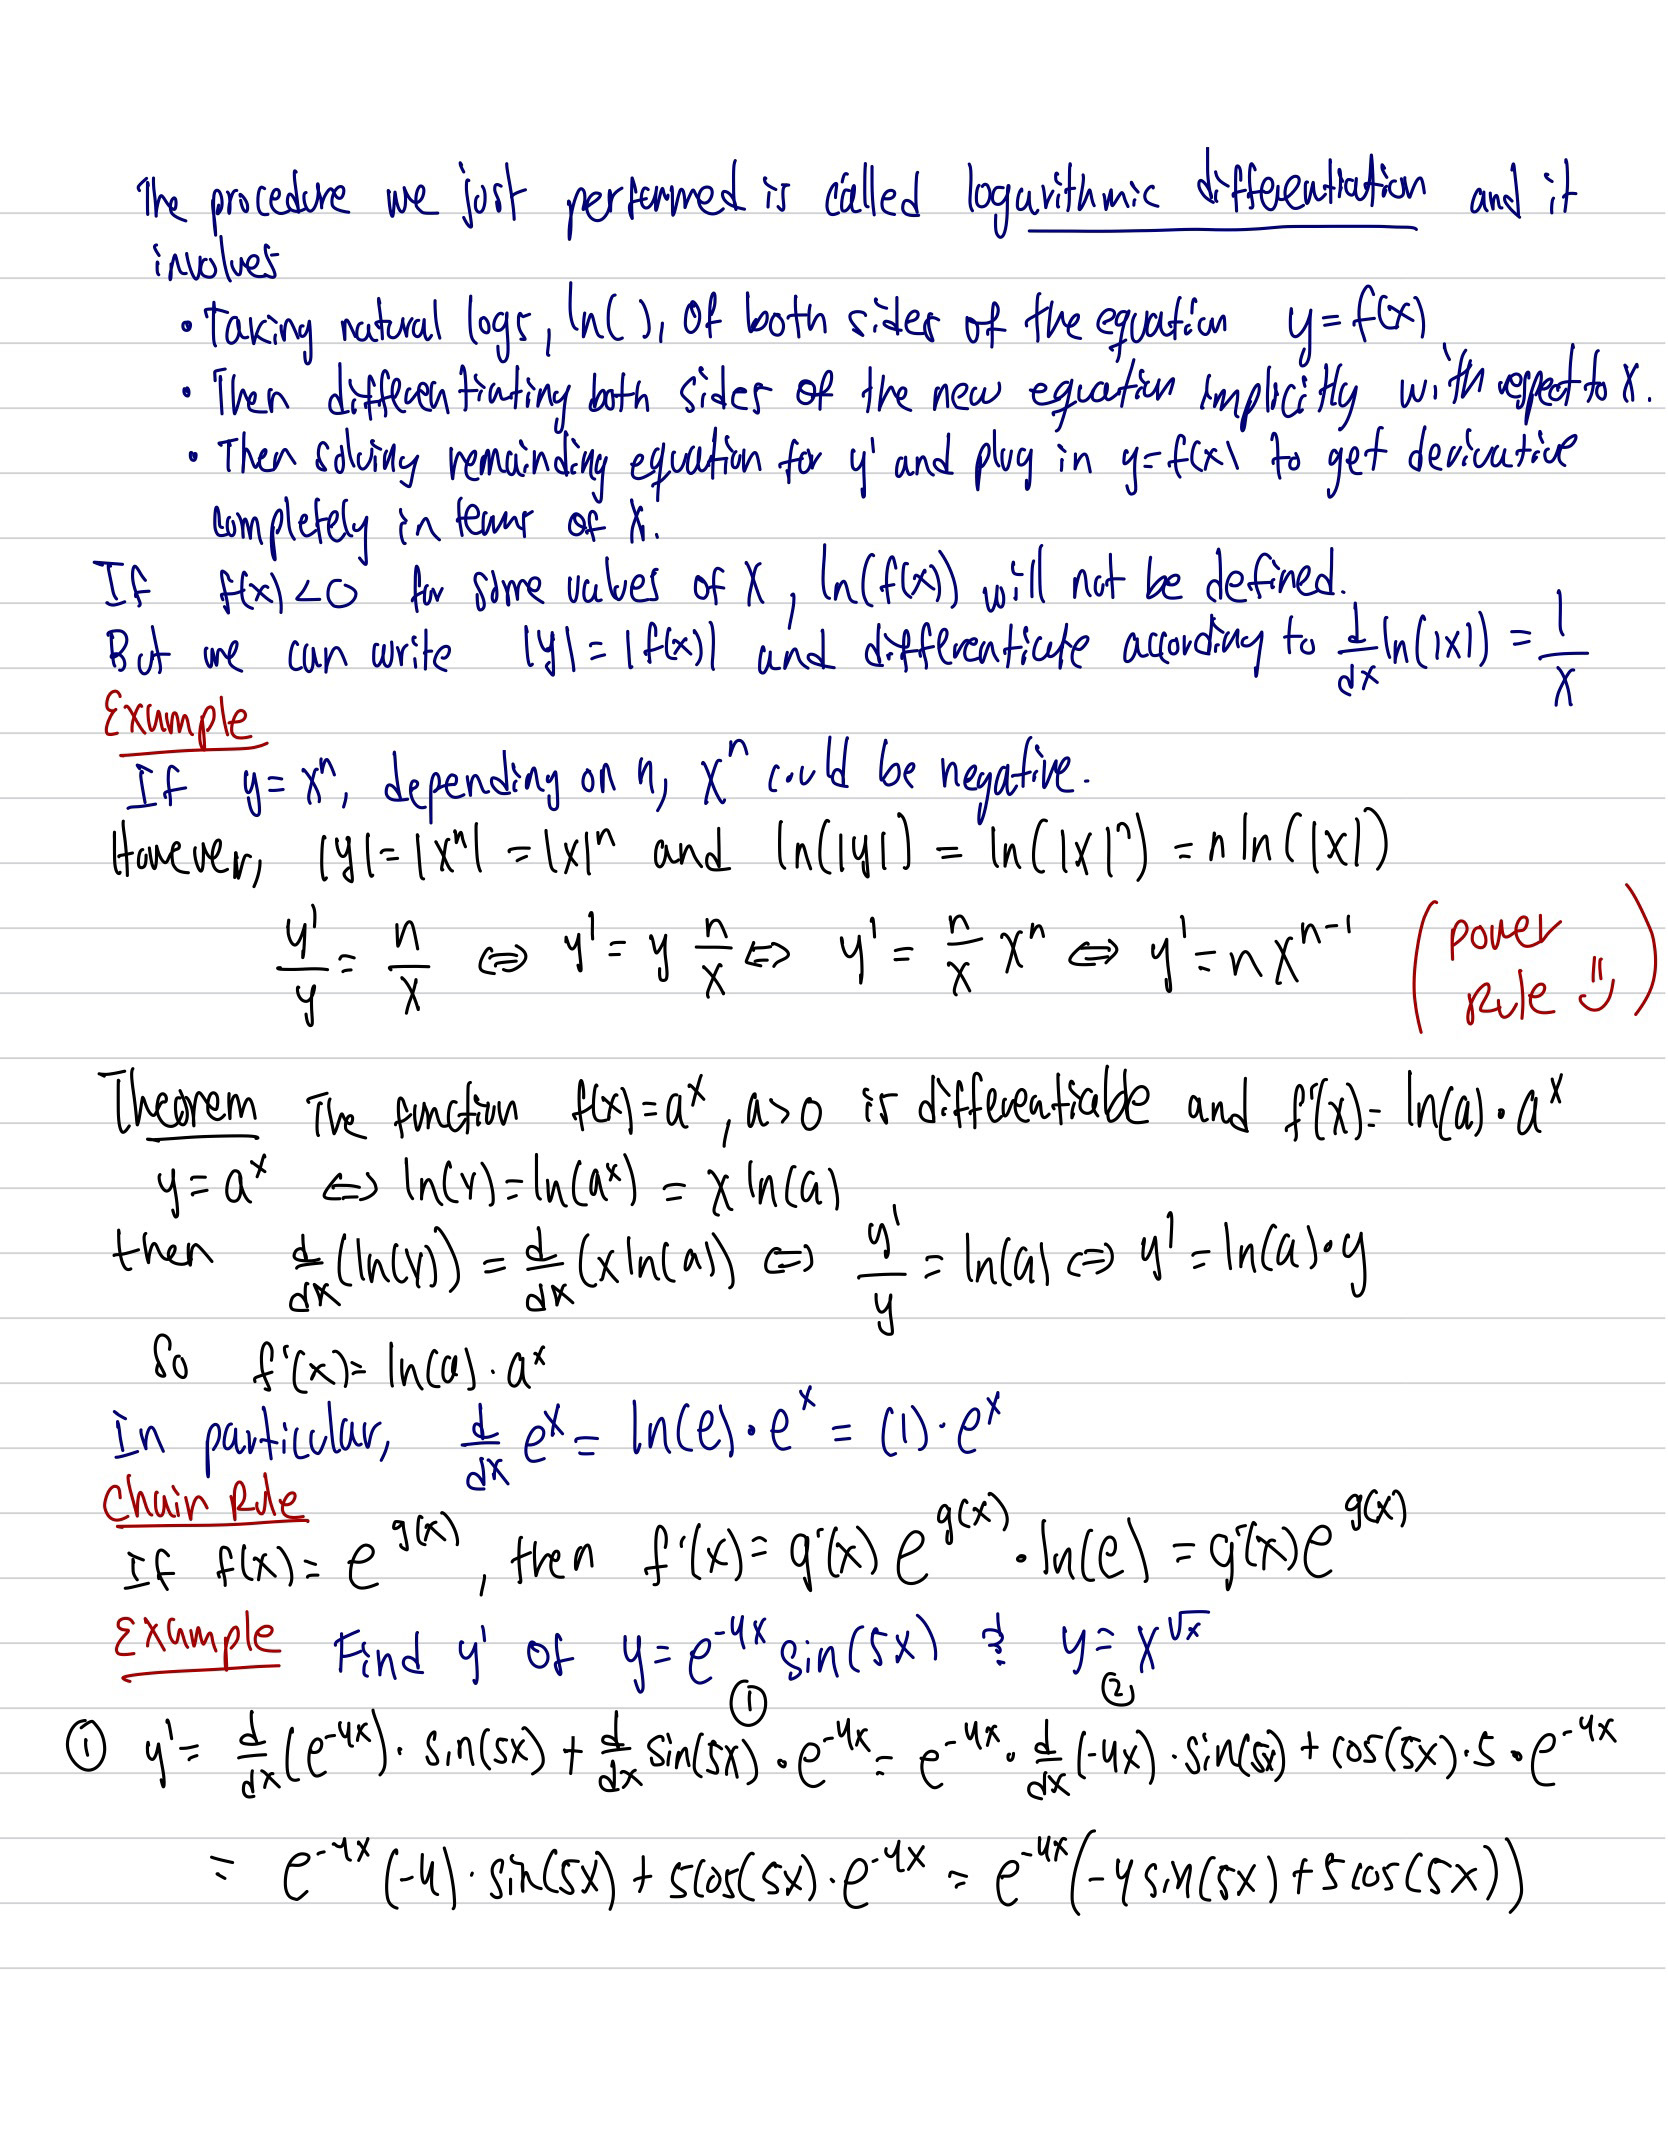 The procedure we just performed is called logarithmic differentiation and it
involves
• Taking natural logs, ln( ), of both sides of the equation y = f(x)
• Then differentiating both sides of the new equation implicitly with respect to x.
• Then solving remainding equation for y' and plug in y=f(x) to get derivative
completely in terms of x.
If f(x) < 0 for some values of x, ln(f(x)) will not be defined.
But we can write |y| = |f(x)| and differenticate according to d/dx ln(|x|) = 1/x
Example
If y = x^n, depending on n, x^n could be negative.
However, |y| = |x^n| = |x|^n and ln(|y|) = ln(|x|^n) = n ln(|x|)
y'/y = n/x ⇔ y' = y n/x ⇔ y' = n/x x^n ⇔ y' = n x^{n-1} (power rule :))
Theorem The function f(x) = a^x, a > 0 is differentiable and f'(x) = ln(a) · a^x
y = a^x ⇔ ln(y) = ln(a^x) = x ln(a)
then d/dx (ln(y)) = d/dx (x ln(a)) ⇔ y'/y = ln(a) ⇔ y' = ln(a) · y
So f'(x) = ln(a) · a^x
In particular, d/dx e^x = ln(e) · e^x = (1) · e^x
Chain Rule
If f(x) = e^{g(x)}, then f'(x) = g'(x) e^{g(x)} · ln(e) = g'(x) e^{g(x)}
Example Find y' of y = e^{-4x} sin(5x) & y = x^{√x}
① ②
① y' = d/dx (e^{-4x}) · sin(5x) + d/dx sin(5x) · e^{-4x} = e^{-4x} · d/dx (-4x) · sin(5x) + cos(5x) · 5 · e^{-4x}
= e^{-4x} (-4) · sin(5x) + 5cos(5x) · e^{-4x} = e^{-4x} (-4 sin(5x) + 5 cos(5x))